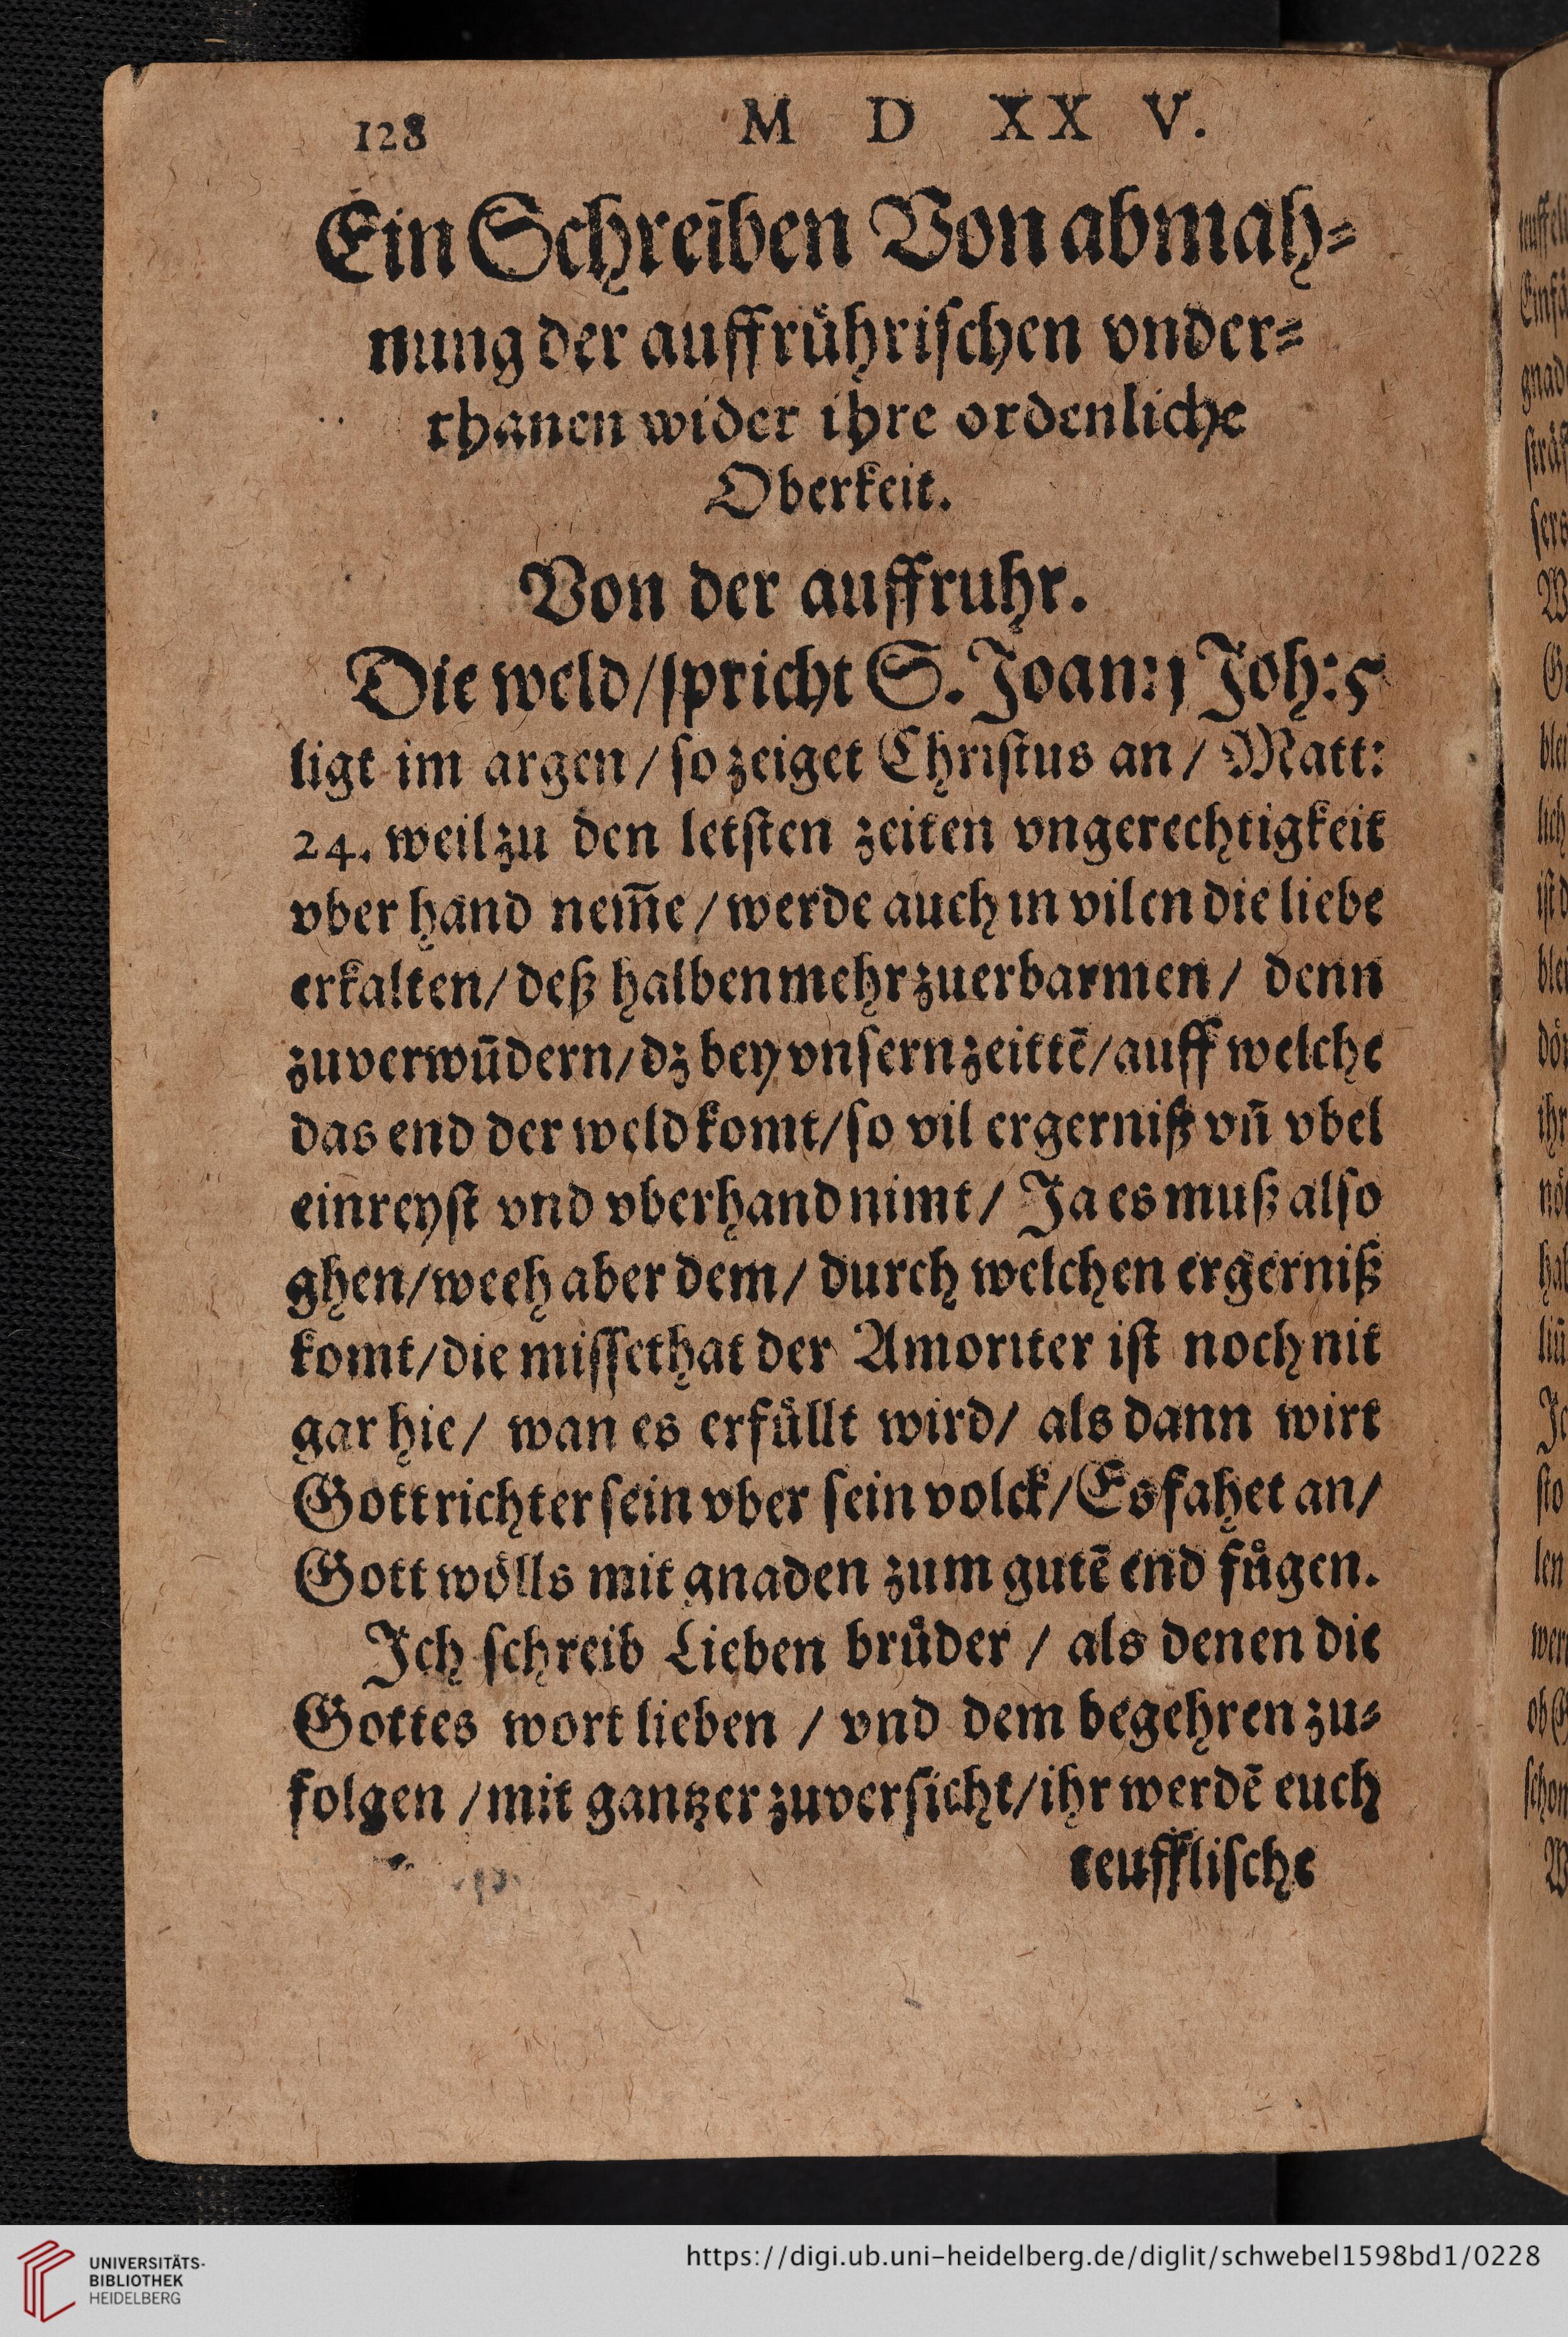 128 M D XX V.
Ein Schreiben Von abmah⸗
nung der auffruͤhrischen vnder⸗
thanen wider ihre ordenliche
Oberkeit.
Von der auffruhr.
Die weld/spricht S. Joan: 1 Joh: 5
ligt im argen/ so zeiget Christus an/ Matt:
24. weil zu den letsten zeiten vngerechtigkeit
vber hand nem̅e/ werde auch in vilen die liebe
erkalten/ deß halben mehr zuerbarmen/ denn
zuverwun̄dern/ dz bey vnsern zeittē/ auff welche
das end der weld komt/ so vil ergerniß vn̄ vbel
einreyst vnd vberhand nimt/ Ja es muß also
ghen/ weeh aber dem/ durch welchen ergerniß
komt/ die missethat der Amoriter ist noch nit
gar hie/ wan es erfuͤllt wird/ als dann wirt
Gott richter sein vber sein volck/ Es fahet an/
Gott woͤlls mit gnaden zum gutē end fuͤgen.
Ich schreib Lieben bruͤder / als denen die
Gottes wort lieben / vnd dem begehren zu⸗
folgen / mit gantzer zuversicht/ ihr werdē euch
teufflische
UNIVERSITÄTS-
BIBLIOTHEK
HEIDELBERG
https://digi.ub.uni-heidelberg.de/diglit/schwebel1598bd1/0228